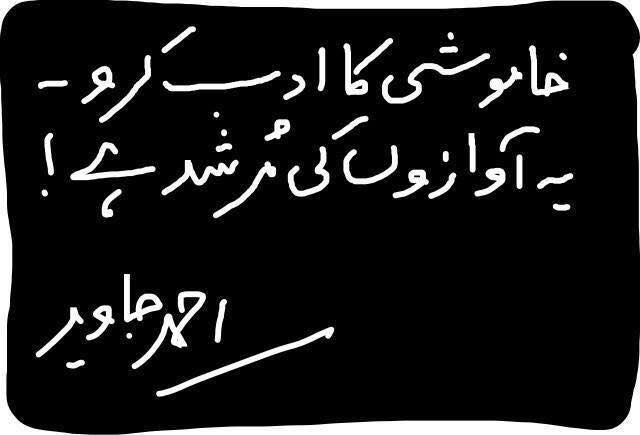 خاموشی کا ادب کرو۔
یہ آوازوں کی مُرشد ہے!
احمد جاوید